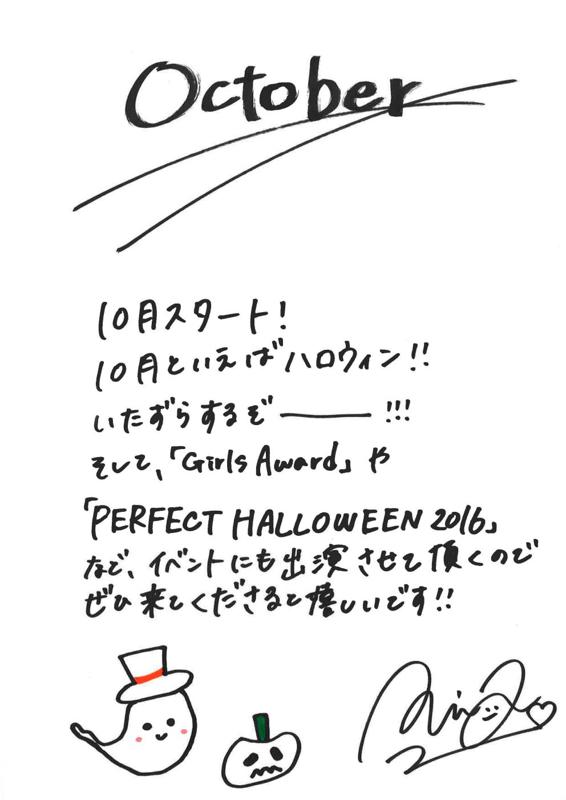 October
10月スタート!
10月といえばハロウィン!!
いたずらするぞ───!!!
そして、「Girls Award」や
「PERFECT HALLOWEEN 2016」
など、イベントにも出演させて頂くので
ぜひ来てくださると嬉しいです!!